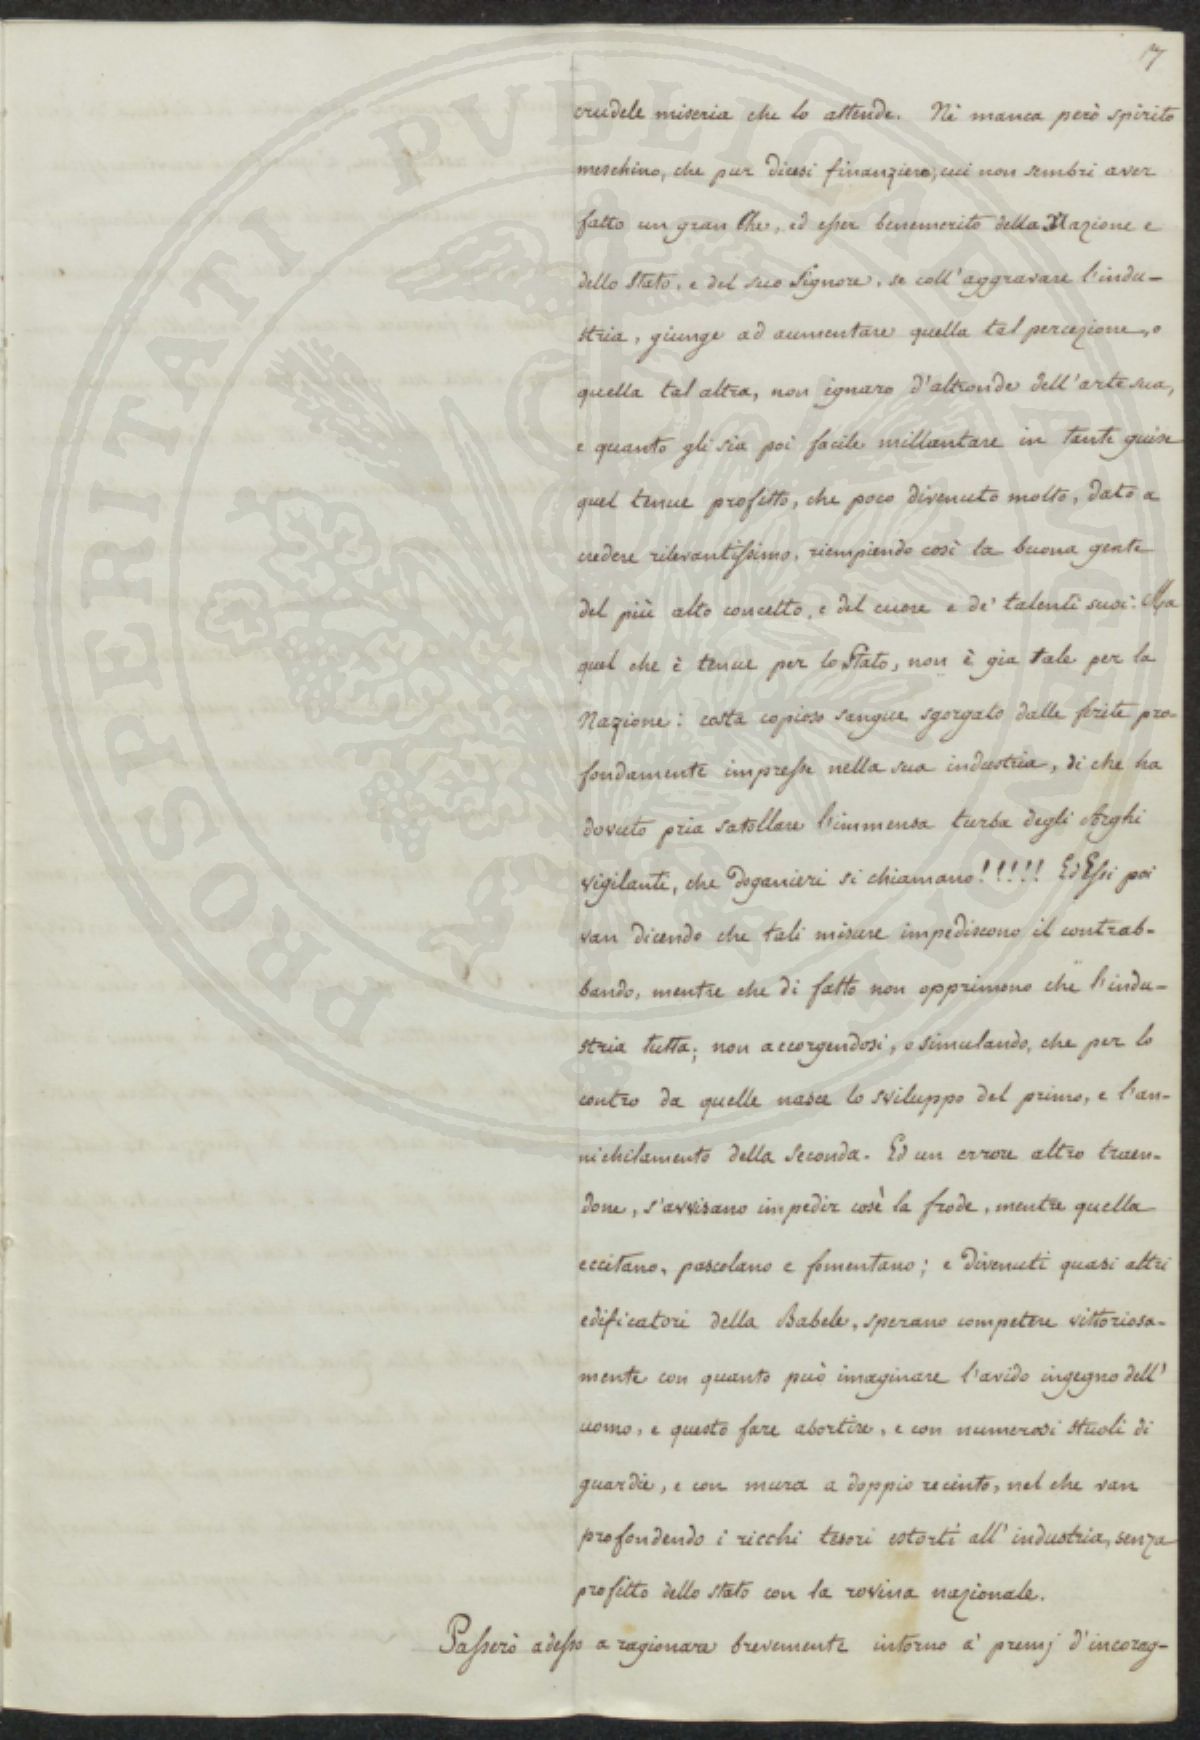 17
crudele miseria che lo attende. Nè manca però spirito
meschino, che pur dicesi finanziere, cui non sembri aver
fatto un gran Che, ed esser benemerito della Nazione e
dello Stato, e del suo Signore, se coll'aggravare l'indu-
stria, giunge ad aumentare quella tal percezione, o
quella tal altra, non ignaro d'altronde dell'arte sua,
e quanto gli sia poi facile millantare in tante guise
quel tenue profitto, che poco divenuto molto, dato a
credere rilevantissimo, riempiendo così la buona gente
del più alto concetto, e del cuore e de' talenti suoi: Ma
quel che è tenue per lo Stato, non è gia tale per la
Nazione: costa copioso sangue sgorgato dalle ferite pro-
fondamente impresse nella sua industria, di che ha
dovuto pria satollare l'immensa turba degli Arghi
vigilanti, che Doganieri si chiamano!!!!! Ed Essi poi
van dicendo che tali misure impediscono il contrab-
bando, mentre che di fatto non opprimono che l'indu-
stria tutta; non accorgendosi, o simulando, che per lo
contro da quelle nasce lo sviluppo del primo, e l'an-
nichilamento della seconda. Ed un errore altro traen-
done, s'avvisano impedir così la frode, mentre quella
eccitano, pascolano e fomentano; e divenuti quasi altri
edificatori della Babele, sperano competere vittoriosa-
mente con quanto può imaginare l'avido ingegno dell'
uomo, e questo fare abortire, e con numerosi stuoli di
guardie, e con mura a doppio recinto, nel che van
profondendo i ricchi tesori estorti all'industria, senza
profitto dello stato con la rovina nazionale.
Passerò adesso a ragionare brevemente intorno a' premj d'incorag-
PROSPERITATI PUBLICAE AUGENDAE